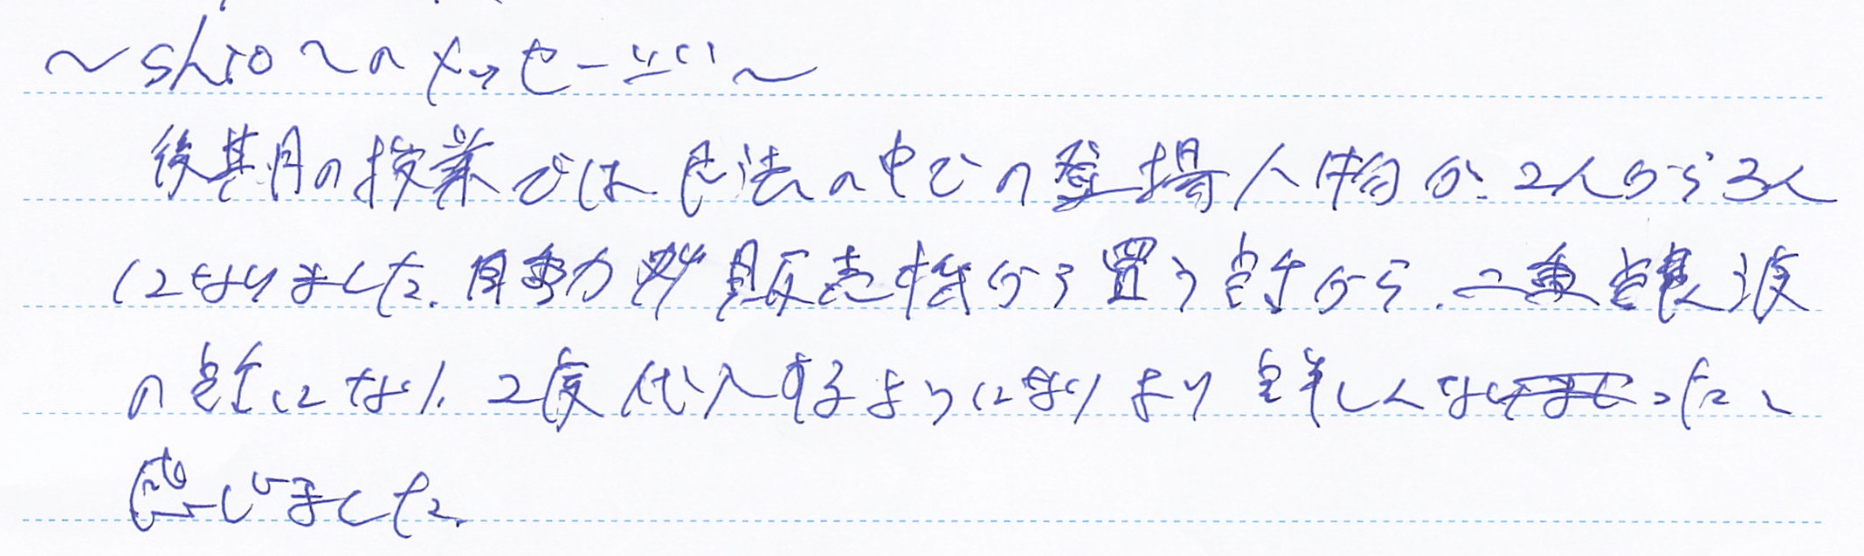 ～shioへのメッセージ～
後期の授業では、民法の中での登場人物が、2人から3人
になりました。自動販売機から買う話から、二重譲渡
の話になり、2度代入するようになりより詳しくなったと
感じました。